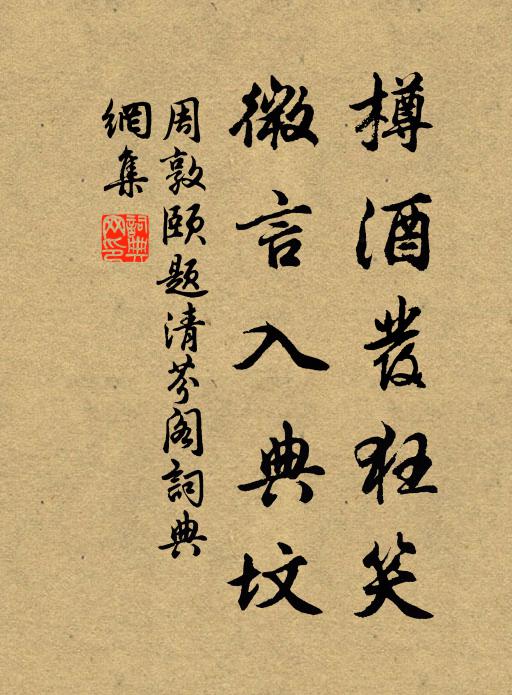 樽酒發狂笑
微言入典坟
周敦颐题清芬阁詞典
網集
詞典网印